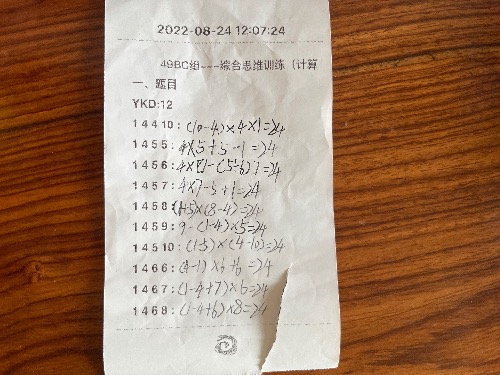 2022-08-24 12:07:24
49BC组---综合思维训练（计算
一、题目
YKD:12
14410:(10-4)×4×1=24
1455:4×5+5-1=24
1456:4×[1-(5-6)]=24
1457:4×7-5+1=24
1458:(1+5)×(8-4)=24
1459:9-(1-4)×5=24
14510:(1-5)×(4-10)=24
1466:(4-1)×6+6=24
1467:(1-4+7)×6=24
1468:(1-4+6)×8=24